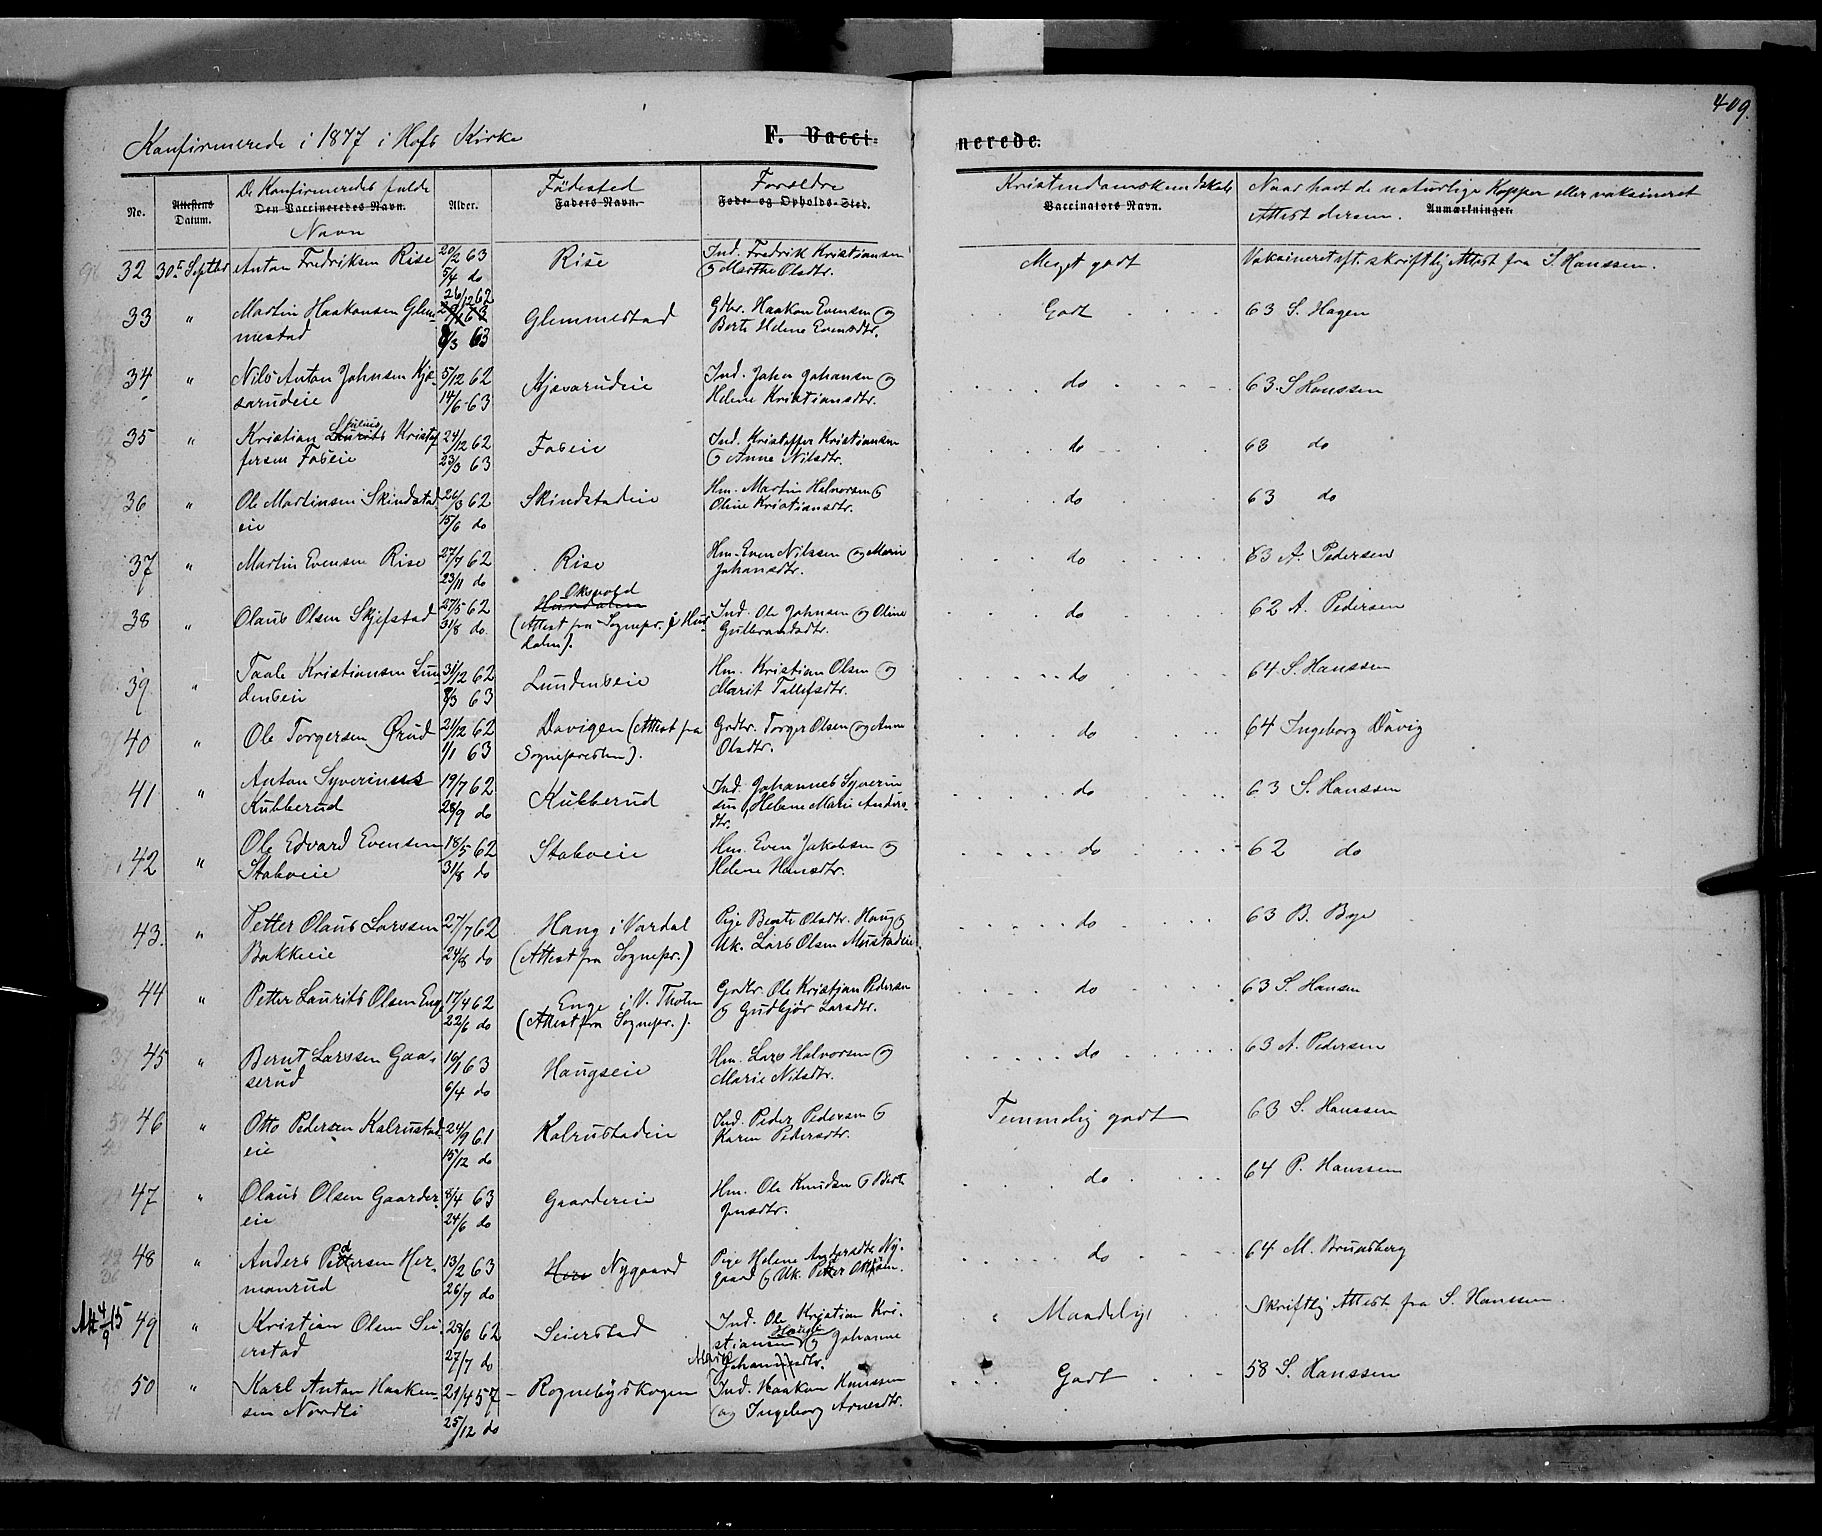 409
Konfirmerede i 1877 i Hofs Kirke F. Vacci- nerede.
No. Attestens Datum. De Konfirmeredes fulde Navn Den Vaccineredes Navn. Alder. Fødested Faders Navn. Forældre Føde- og Opholds-Sted. Kristendomskundskab Vaccinators Navn. Naar havt de naturlige Kopper eller vaksineret
Attest derom. Anmærkninger.
32 30te Septbr Anton Fredriksen Rise 20/2 63 Rise Ind. Fredrik Kristiansen Meget godt Vaksineret eft. skriftlig Attest fra S. Hanssen.
5/4 do og Marthe Olsdtr.
26/12 62
33 " Martin Haakonsen Glem- Glemmestad Gbr. Haakon Evensen og Godt 63 S. Hagen
mestad 8/3 63 Berte Helene Evensdtr.
34 " Nils Anton Johnsen Kjø- 5/12 62 Ind. John Johansen og do 63 S Hanssen
sarudeie 14/6 63 Helene Kristiansdtr.
35 " Kristian Laurits Julius Kristof- 24/12 62 Foseie Ind. Kristoffer Kristiansen do 63 do
fersen Foseie 23/3 63 og Anne Nilsdtr.
36 " Ole Martinsen Skindstad- 26/3 62 Skindstadeie Hm. Martin Halvorsen og do 63 do
eie 15/6 do Oline Kristiansdtr.
37 " Martin Evensen Rise 27/9 62 Rise Hm. Even Nilssen og Marie do 63 A. Pedersen
23/11 do Johansdtr.
38 " Olaus Olsen Skjefstad 27/5 62 Hurdalen Ind. Ole Johnsen og Oline do 62 A. Pedersen
31/8 do (Attest fra Sognepr. i Hur- Gulbrandsdtr.
dalen).
39 " Taale Kristiansen Lun- 31/12 62 Lundenseie Hm. Kristian Olsen og do 64 S. Hanssen
denseie 8/3 63 Marit Tollefsdtr.
40 " Ole Torgersen Ørud 21/12 62 Davigen (Attest fra Grdbr. Torger Olsen og Anne do 64 Ingeborg Davig
1/1 63 Sognepresten). Olsdtr.
41 " Anton Syverinsen 19/7 62 Kubberud Ind. Johannes Syverin- do 63 S. Hanssen
Kubberud 28/9 do sen og Helene Marie Anders-
dtr.
42 " Ole Edvard Evensen 18/5 62 Staboeie Hm. Even Jakobsen og do 62 do
Staboeie 31/8 do Helene Hansdtr.
43. " Petter Olaus Larssen 27/7 62 Haug i Vardal Pige Beate Olsdtr. Haug og do 63 B. Bye
Bakkeeie 24/8 do (Attest fra Sognepr.) Uk. Lars Olsen Mustadeie
44 " Petter Laurits Olsen Enge 17/4 62 Enge i V. Thoten Grdbr. Ole Kristian Pedersen do 63 S. Hansen
22/6 do (Attest fra Sognepr.). og Gudbjør Larsdtr.
45 " Bernt Larssen Gaa- 16/1 63 Haugseie Hm. Lars Halvorsen og do 63 A. Pedersen
serud 6/4 do Marie Nilsdtr.
46 " Otto Pedersen Kalrustad- 24/9 61 Kalrustadeie Ind. Peder Pedersen og Temmelig godt 63 S. Hanssen
eie 15/12 do Karen Pedersdtr.
47 " Olaus Olsen Gaarder- 8/4 63 Gaardereie Hm. Ole Knudsen og Berte do 64 P. Hanssen
eie 24/6 do Jensdtr.
48 " Anders Pedersen Her- 13/2 63 Hers Nygaard Pige Helene Andersdtr. Ny- do 64 M. Brunsberg
manrud 26/7 do gaard og Uk. Petter Ottosen.
Att 4/9 15 49 " Kristian Olsen Sei- 28/6 62 Seierstad Ind. Ole Kristian Kri- " Maadelig Skriftlig Attest fra S. Hanssen.
erstad 27/7 do stiansen Haugen og Johanne
Marie Johansdtr.
50 " Karl Anton Haaken- 21/4 57 Rognebyskogen Ind. Haakon Knussen Godt 58 S. Hanssen
sen Nordli 25/12 do og Ingeborg Arnesdtr.